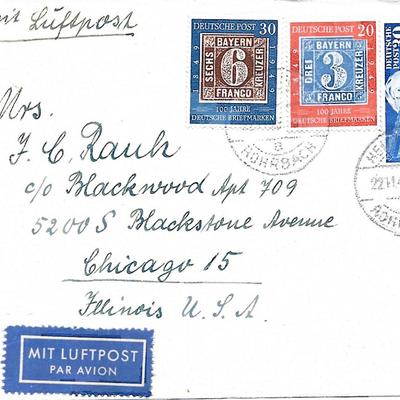 mit Luftpost
DEUTSCHE POST 30
1849 1949
BAYERN
SECHS 6 KREUZER
FRANCO
100 JAHRE
DEUTSCHE BRIEFMARKEN
DEUTSCHE POST 20
1849 1949
BAYERN
DREI 3 KREUZER
FRANCO
100 JAHRE
DEUTSCHE BRIEFMARKEN
DEUTSCHE
POST
a
ROHRBACH
Mrs.
J. C. Rauh
c/o Blackwood Apt 709
5200 S Blackstone Avenue
Chicago 15
Illinois U. S. A
MIT LUFTPOST
PAR AVION